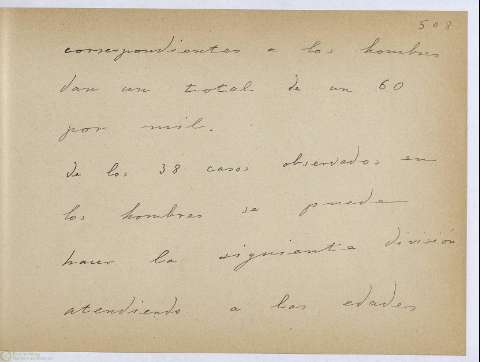 508
correspondientes a los hombres
dan un total de un 60
por mil.
de los 38 casos observados en
los hombres se puede
hacer la siguiente división
atendiendo a las edades